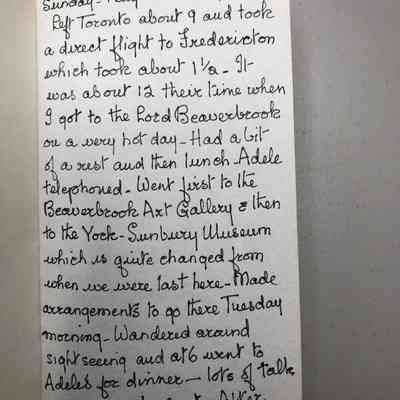 Sunday-
Left Toronto about 9 and took
a direct flight to Fredericton
which took about 1½ - It
was about 12 their time when
I got to the Lord Beaverbrook
on a very hot day - Had a bit
of a rest and then lunch - Adele
telephoned - Went first to the
Beaverbrook Art Gallery & then
to the York-Sunbury Museum
which is quite changed from
when we were last here - Made
arrangements to go there Tuesday
morning - Wandered around
sightseeing and at 6 went to
Adeles for dinner - lots of talk
After